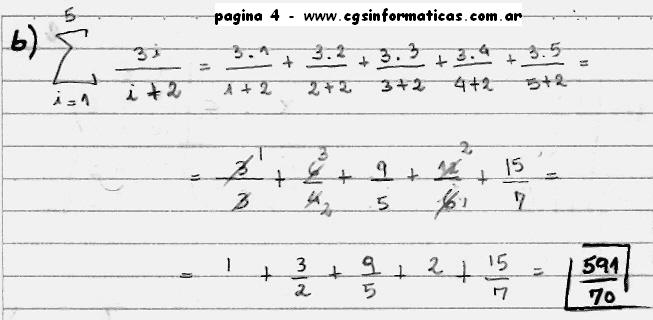 pagina 4 - www.cgsinformaticas.com.ar
b) \sum_{i=1}^{5} \frac{3i}{i+2} = \frac{3.1}{1+2} + \frac{3.2}{2+2} + \frac{3.3}{3+2} + \frac{3.4}{4+2} + \frac{3.5}{5+2} =
= \frac{3}{3}^{1} + \frac{6^{3}}{4_{2}} + \frac{9}{5} + \frac{12^{2}}{6_{1}} + \frac{15}{7} =
= 1 + \frac{3}{2} + \frac{9}{5} + 2 + \frac{15}{7} = \frac{591}{70}